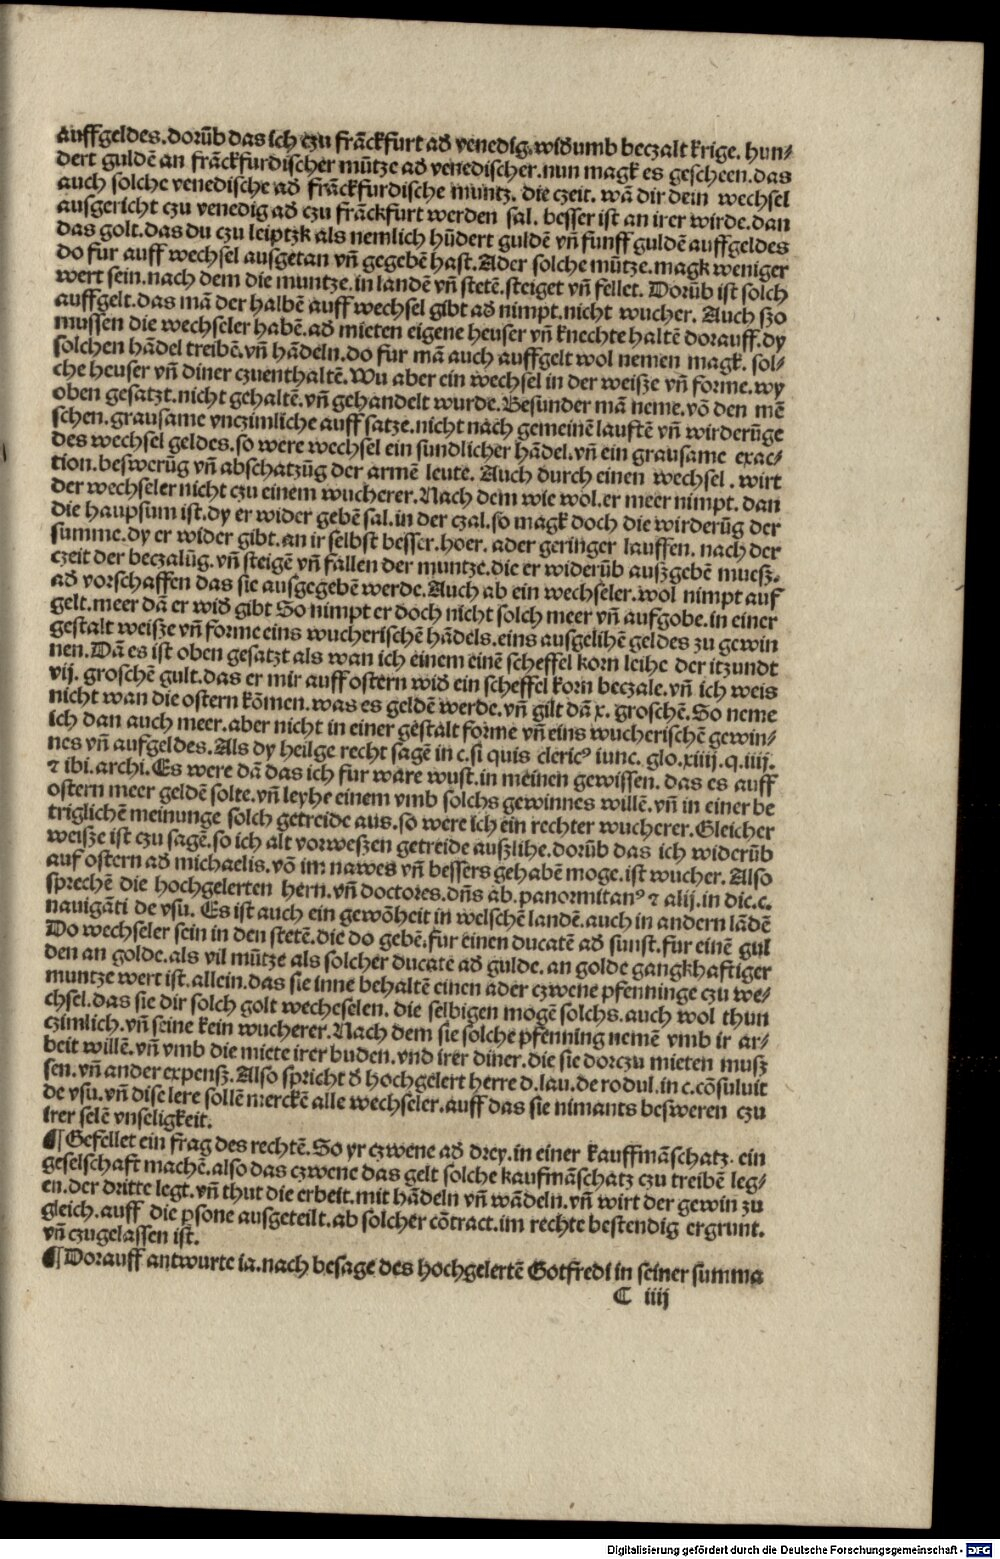 auffgeldes.dorūb das ich czu frāckfurt ad̄ venedig.wid̄umb beczalt krige. hun⸗
dert guldē an frāckfurdischer mūtze ad̄ venedischer.nun magk es gescheen.das
auch solche venedische ad̄ frāckfurdische muntz. die czeit. wā dir dein wechsel
ausgericht czu venedig ad̄ czu frāckfurt werden sal. besser ist an irer wirde.dan
das golt.das du czu leiptzk als nemlich hūdert guldē vn̄ funff guldē auffgeldes
do fur auff wechsel ausgetan vn̄ gegebē hast.Ader solche mūtze.magk weniger
wert sein.nach dem die muntze.in landē vn̄ stetē.steiget vn̄ fellet. Dorūb ist solch
auffgelt.das mā der halbē auff wechsel gibt ad̄ nimpt.nicht wucher. Auch szo
mussen die wechseler habē.ad̄ mieten eigene heuser vn̄ knechte haltē dorauff.dy
solchen hādel treibē.vn̄ hādeln.do fur mā auch auffgelt wol nemen magk. sol⸗
che heuser vn̄ diner czuenthaltē.Wu aber ein wechsel in der weisze vn̄ forme.wy
oben gesatzt.nicht gehaltē.vn̄ gehandelt wurde.Besunder mā neme.vō den mē
schen.grausame vnczimliche auff satze.nicht nach gemeinē lauftē vn̄ wirderūge
des wechsel geldes.so were wechsel ein sundlicher hādel.vn̄ ein grausame exac⸗
tion.beswerūg vn̄ abschatzūg der armē leute. Auch durch einen wechsel . wirt
der wechseler nicht czu einem wucherer.Nach dem wie wol.er meer nimpt. dan
die haupsum ist.dy er wider gebē sal.in der czal.so magk doch die wirderūg der
summe.dy er wider gibt.an ir selbst besser.hoer. ader geringer lauffen. nach der
czeit der beczalūg.vn̄ steigē vn̄ fallen der muntze.die er widerūb auszgebē muesz.
ad̄ vorschaffen das sie ausgegebē werde.Auch ab ein wechseler.wol nimpt auf
gelt.meer dā er wid̄ gibt So nimpt er doch nicht solch meer vn̄ aufgobe.in einer
gestalt weisze vn̄ forme eins wucherischē hādels.eins ausgelihē geldes zu gewin
nen.Dā es ist oben gesatzt als wan ich einem einē scheffel korn leihe der itzundt
vij. groschē gult.das er mir auff ostern wid̄ ein scheffel korn beczale.vn̄ ich weis
nicht wan die ostern kōmen.was es geldē werde.vn̄ gilt dā x. groschē.So neme
ich dan auch meer.aber nicht in einer gestalt forme vn̄ eins wucherischē gewin⸗
nes vn̄ aufgeldes.Als dy heilge recht sagē in c.si quis clericꝰ iunc. glo.xiiij.q.iiij.
⁊ ibi.archi.Es were dā das ich fur ware wust.in meinen gewissen. das es auff
ostern meer geldē solte.vn̄ leyhe einem vmb solchs gewinnes willē.vn̄ in einer be
triglichē meinunge solch getreide aus.so were ich ein rechter wucherer.Gleicher
weisze ist czu sagē.so ich alt vorweszen getreide auszlihe.dorūb das ich widerūb
auf ostern ad̄ michaelis.vō im nawes vn̄ bessers gehabē moge.ist wucher. Also
sprechē die hochgelerten hern.vn̄ doctores.dn̄s ab.panormitanꝰ ⁊ alij.in dic.c.
nauigāti de vsu. Es ist auch ein gewōheit in welschē landē.auch in andern lādē
Do wechseler sein in den stetē.die do gebē.fur einen ducatē ad̄ sunst.fur einē gul
den an golde.als vil mūtze als solcher ducate ad̄ gulde.an golde gangkhaftiger
muntze wert ist.allein.das sie inne behaltē einen ader czwene pfenninge czu we⸗
chsel.das sie dir solch golt wecheselen. die selbigen mogē solchs.auch wol thun
czimlich.vn̄ seine kein wucherer.Nach dem sie solche pfenning nemē vmb ir ar⸗
beit willē.vn̄ vmb die miete irer buden.vnd irer diner.die sie dorczu mieten musz
sen.vn̄ ander expensz.Also spricht d̄ hochgelert herre d.lau.de rodul.in c.cōsuluit
de vsu.vn̄ dise lere sollē merckē alle wechseler.auff das sie nimants besweren czu
irer selē vnseligkeit.
¶ Gefellet ein frag des rechtē.So yr czwene ad̄ drey.in einer kauffmāschatz. ein
geselschaft machē.also das czwene das gelt solche kaufmāschatz czu treibē leg⸗
en.der dritte legt.vn̄ thut die erbeit.mit hādeln vn̄ wādeln.vn̄ wirt der gewin zu
gleich.auff die ꝑsone ausgeteilt.ab solcher cōtract.im rechte bestendig ergrunt.
vn̄ czugelassen ist.
¶ Dorauff antwurte ia.nach besage des hochgelertē Gotfredi in seiner summa
C iiij
Digitalisierung gefördert durch die Deutsche Forschungsgemeinschaft - DFG